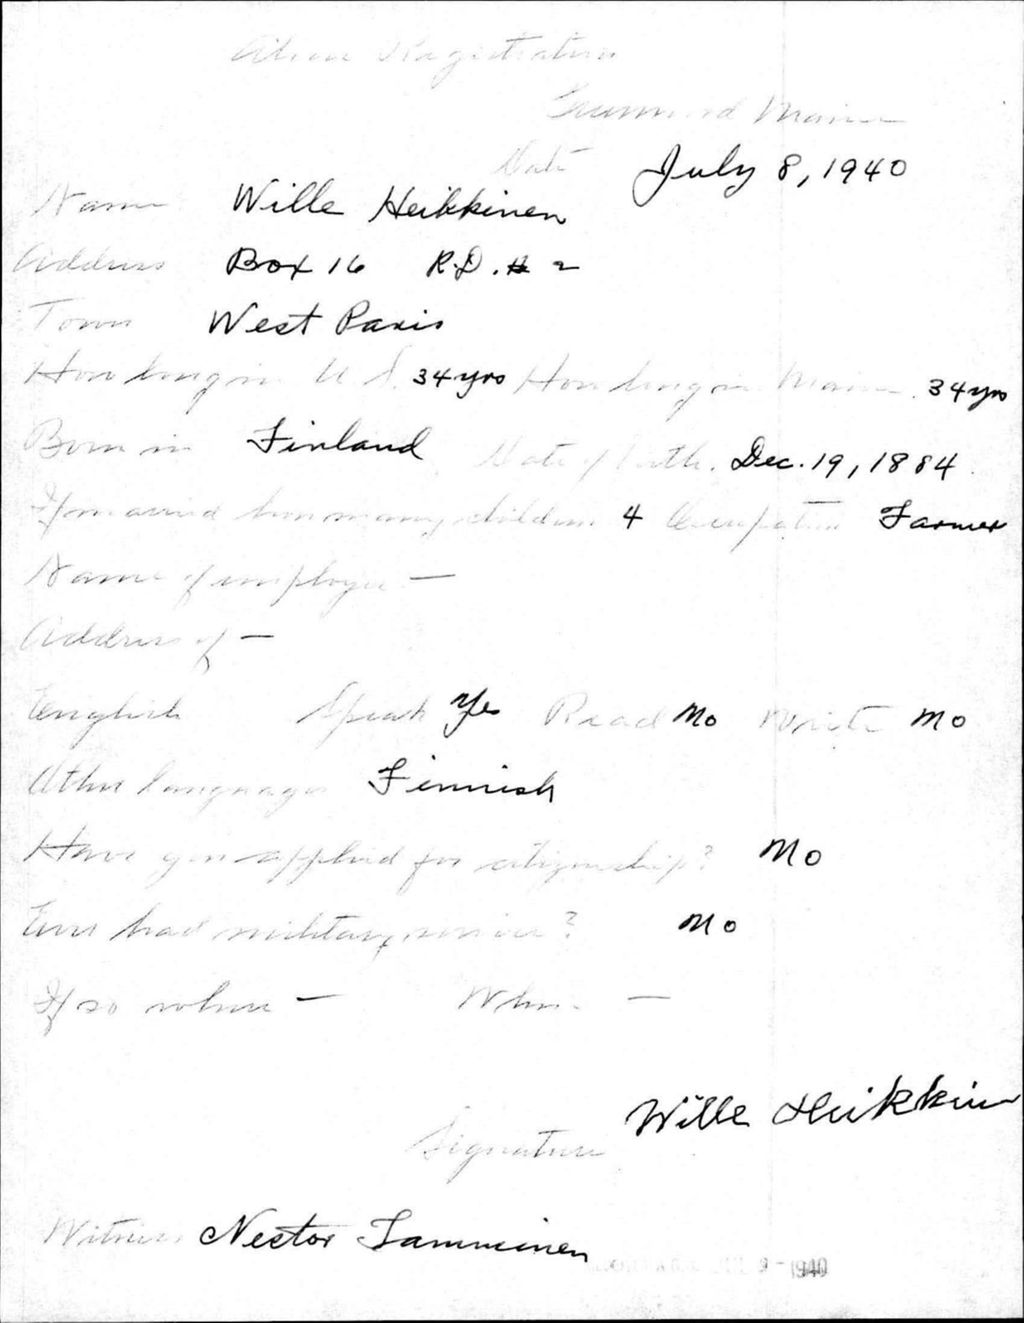 Alien Registration
Greenwood Maine
Date July 8, 1940
Name Wille Heikkinen
Address Box 16 R.D. # 2
Town West Paris
How long in U.S. 34 yrs How long in Maine. 34 yrs
Born in Finland Date of birth. Dec. 19, 1884
If married how many children 4 Occupation Farmer
Name of employer —
Address of —
English Speak Yes Read No Write No
Other languages Finnish
Have you applied for citizenship? No
Ever had military service? No
If so where — When —
Wille Heikkinen
Signature
Witness Nestor Tamminen
9 - 1940